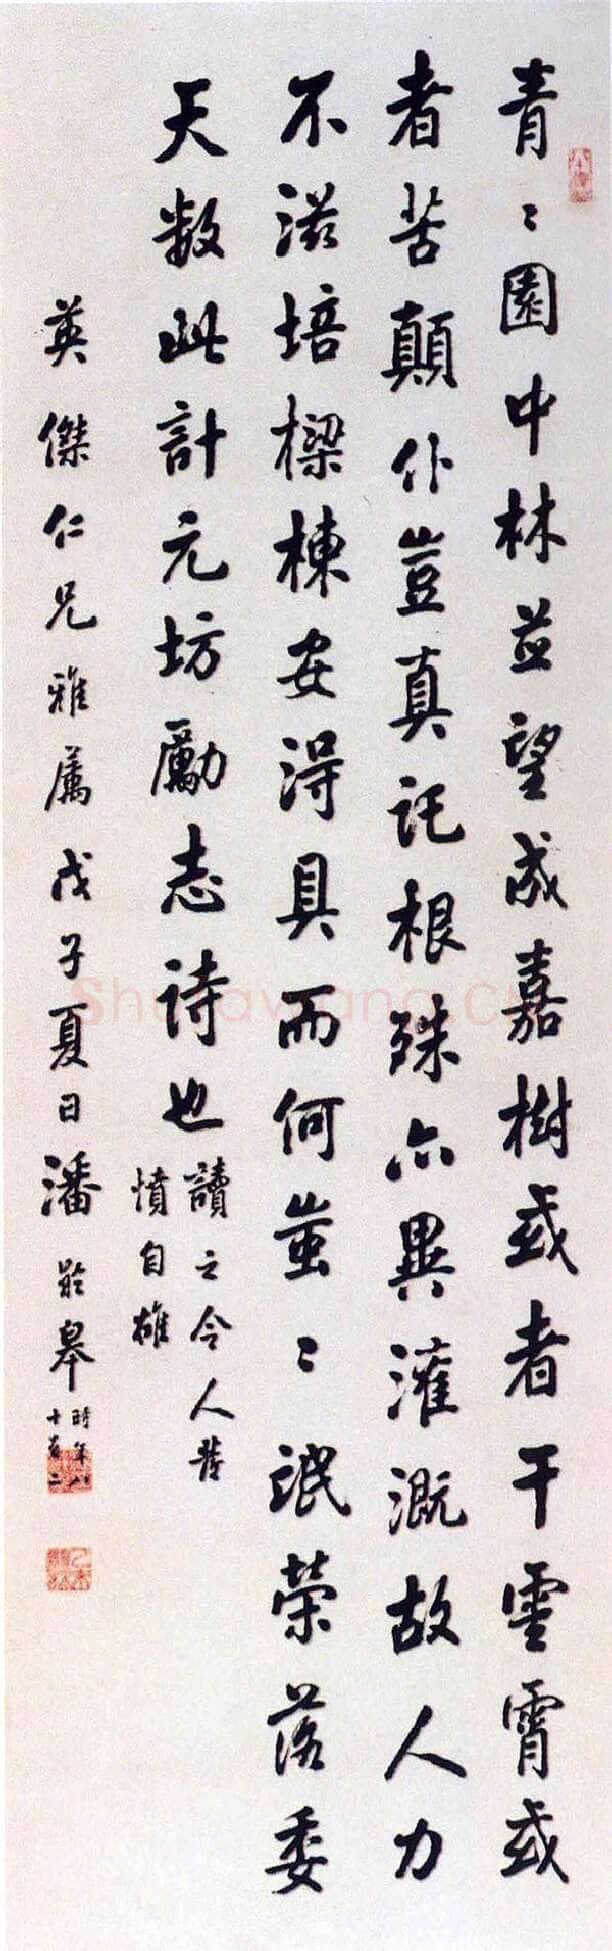 青〻園中林並望成嘉樹或者干雲霄或
者苦顛仆豈真託根殊亦異灌溉故人力
不滋培樑棟安得具而何蚩〻氓榮落委
天數此計元坊勵志詩也
讀之令人發
憤自雄
英傑仁兄雅属戊子夏日潘齡皋
時年八
十有二